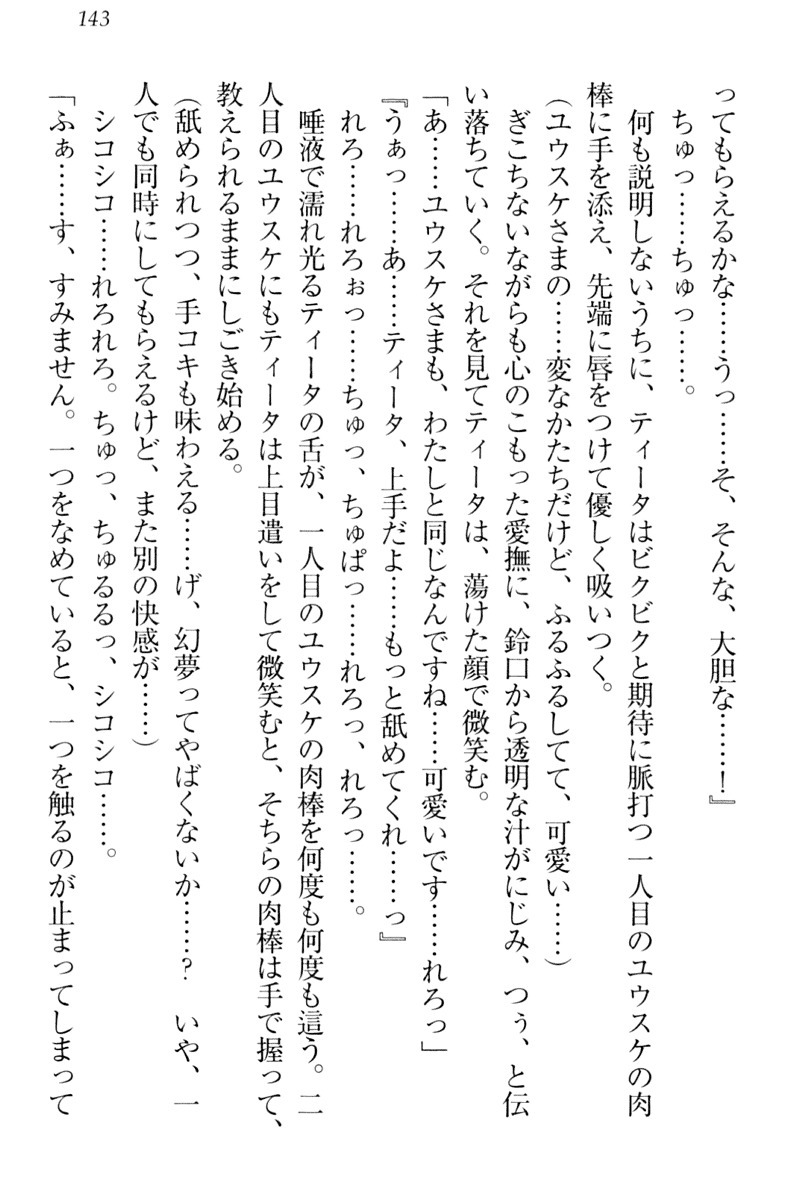 143
ってもらえるかな……うっ……そ、そんな、大胆な……！』
ちゅっ……ちゅっ……。
何も説明しないうちに、ティータはビクビクと期待に脈打つ一人目のユウスケの肉
棒に手を添え、先端に唇をつけて優しく吸いつく。
（ユウスケさまの……変なかたちだけど、ふるふるしてて、可愛い……）
ぎこちないながらも心のこもった愛撫に、鈴口から透明な汁がにじみ、つぅ、と伝
い落ちていく。それを見てティータは、蕩けた顔で微笑む。
「あ……ユウスケさまも、わたしと同じなんですね……可愛いです……れろっ」
『うぁっ……あ……ティータ、上手だよ……もっと舐めてくれ……っ』
れろ……れろぉっ……ちゅっ、ちゅぱっ……れろっ、れろっ……。
唾液で濡れ光るティータの舌が、一人目のユウスケの肉棒を何度も何度も這う。二
人目のユウスケにもティータは上目遣いをして微笑むと、そちらの肉棒は手で握って、
教えられるままにしごき始める。
（舐められつつ、手コキも味わえる……げ、幻夢ってやばくないか……？　いや、一
人でも同時にしてもらえるけど、また別の快感が……）
シコシコ……れろれろ。ちゅっ、ちゅるるっ、シコシコ……。
「ふぁ……す、すみません。一つをなめていると、一つを触るのが止まってしまって